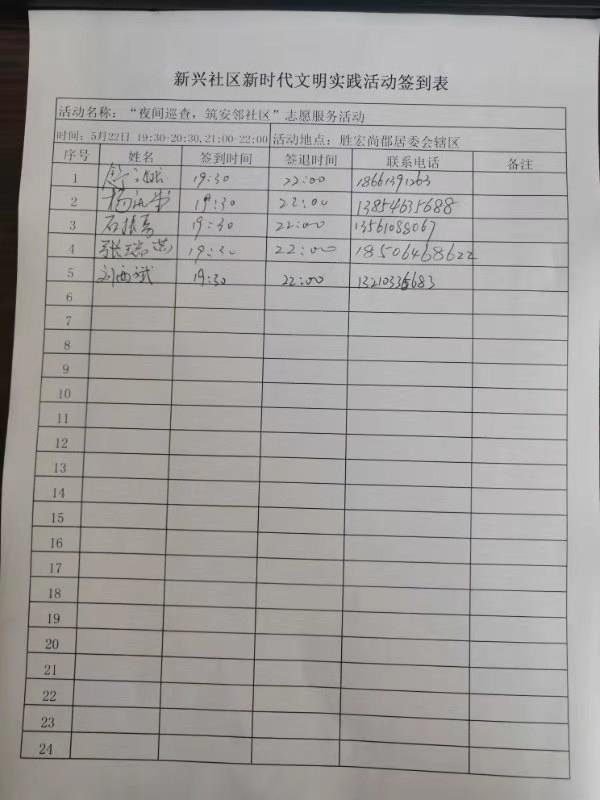 新兴社区新时代文明实践活动签到表
活动名称:“夜间巡查,筑安邻社区”志愿服务活动
时间:5月22日 19:30-20:30,21:00-22:00 活动地点:胜宏尚郡居委会辖区
序号 姓名 签到时间 签退时间 联系电话 备注
1 19:30 22:00 18661391263
2 杨 19:30 22:00 13854635688
3 石振 19:30 22:00 13561088067
4 张瑞 19:30 22:00 18506468622
5 刘 斌 19:30 22:00 13210335683
6
7
8
9
10
11
12
13
14
15
16
17
18
19
20
21
22
23
24